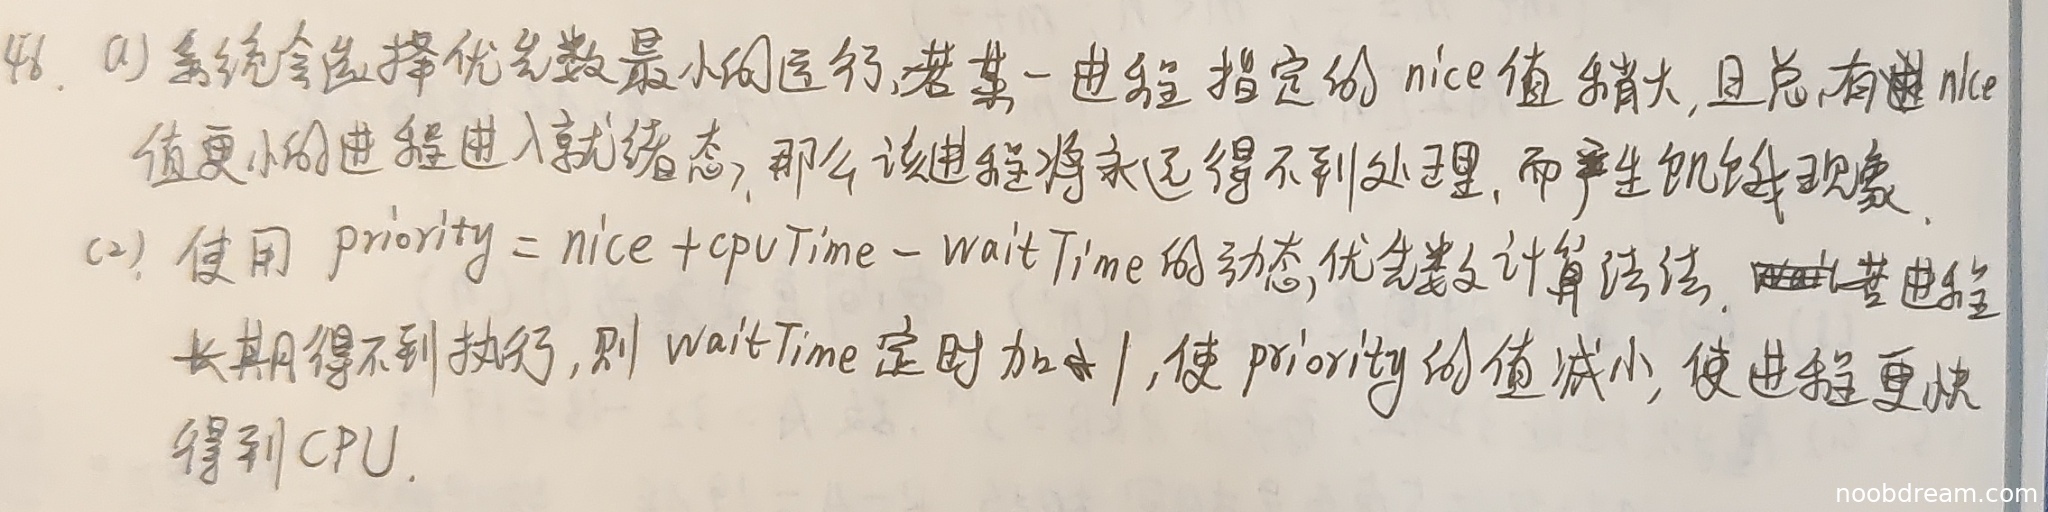 46. (1) 系统会选择优先数最小的运行,若某一进程指定的nice值稍大,且总有进nice
值更小的进程进入就绪态,那么该进程将永远得不到处理,而产生饥饿现象.
(2). 使用 priority = nice + cpuTime - waitTime的动态优先数计算法法. 若进程
长期得不到执行,则 waitTime定时加1,使priority的值减小,使进程更快
得到CPU.
noobdream.com